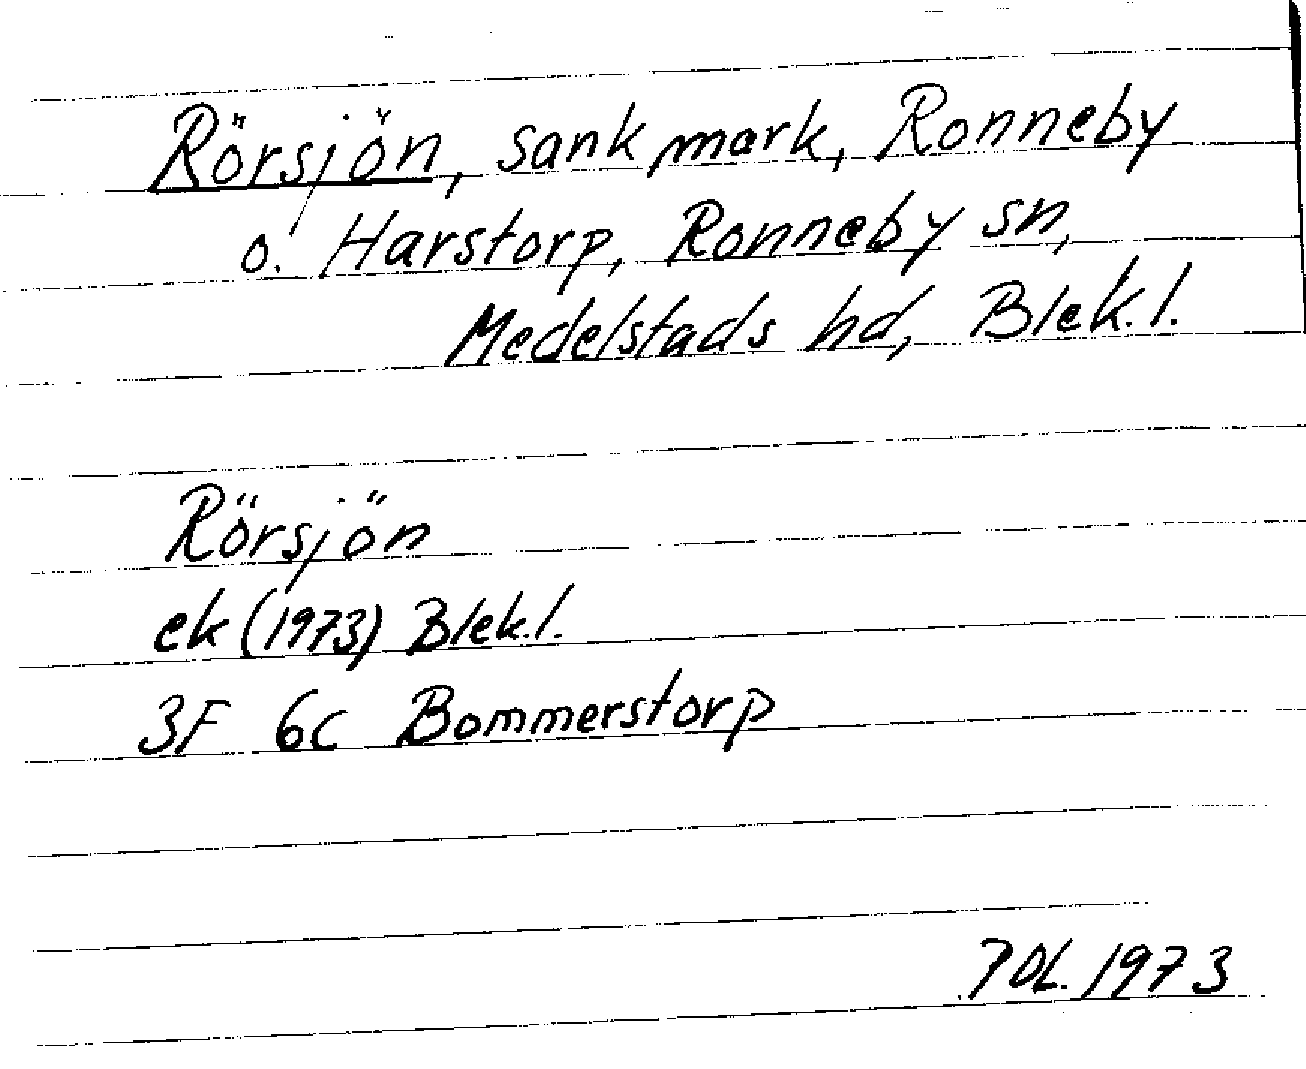 Rörsjön, sank mark, Ronneby
o. Harstorp, Ronneby sn,
Medelstads hd, Blek.l.
Rörsjön
ek (1973) Blek.l.
3F 6c Bommerstorp
1973